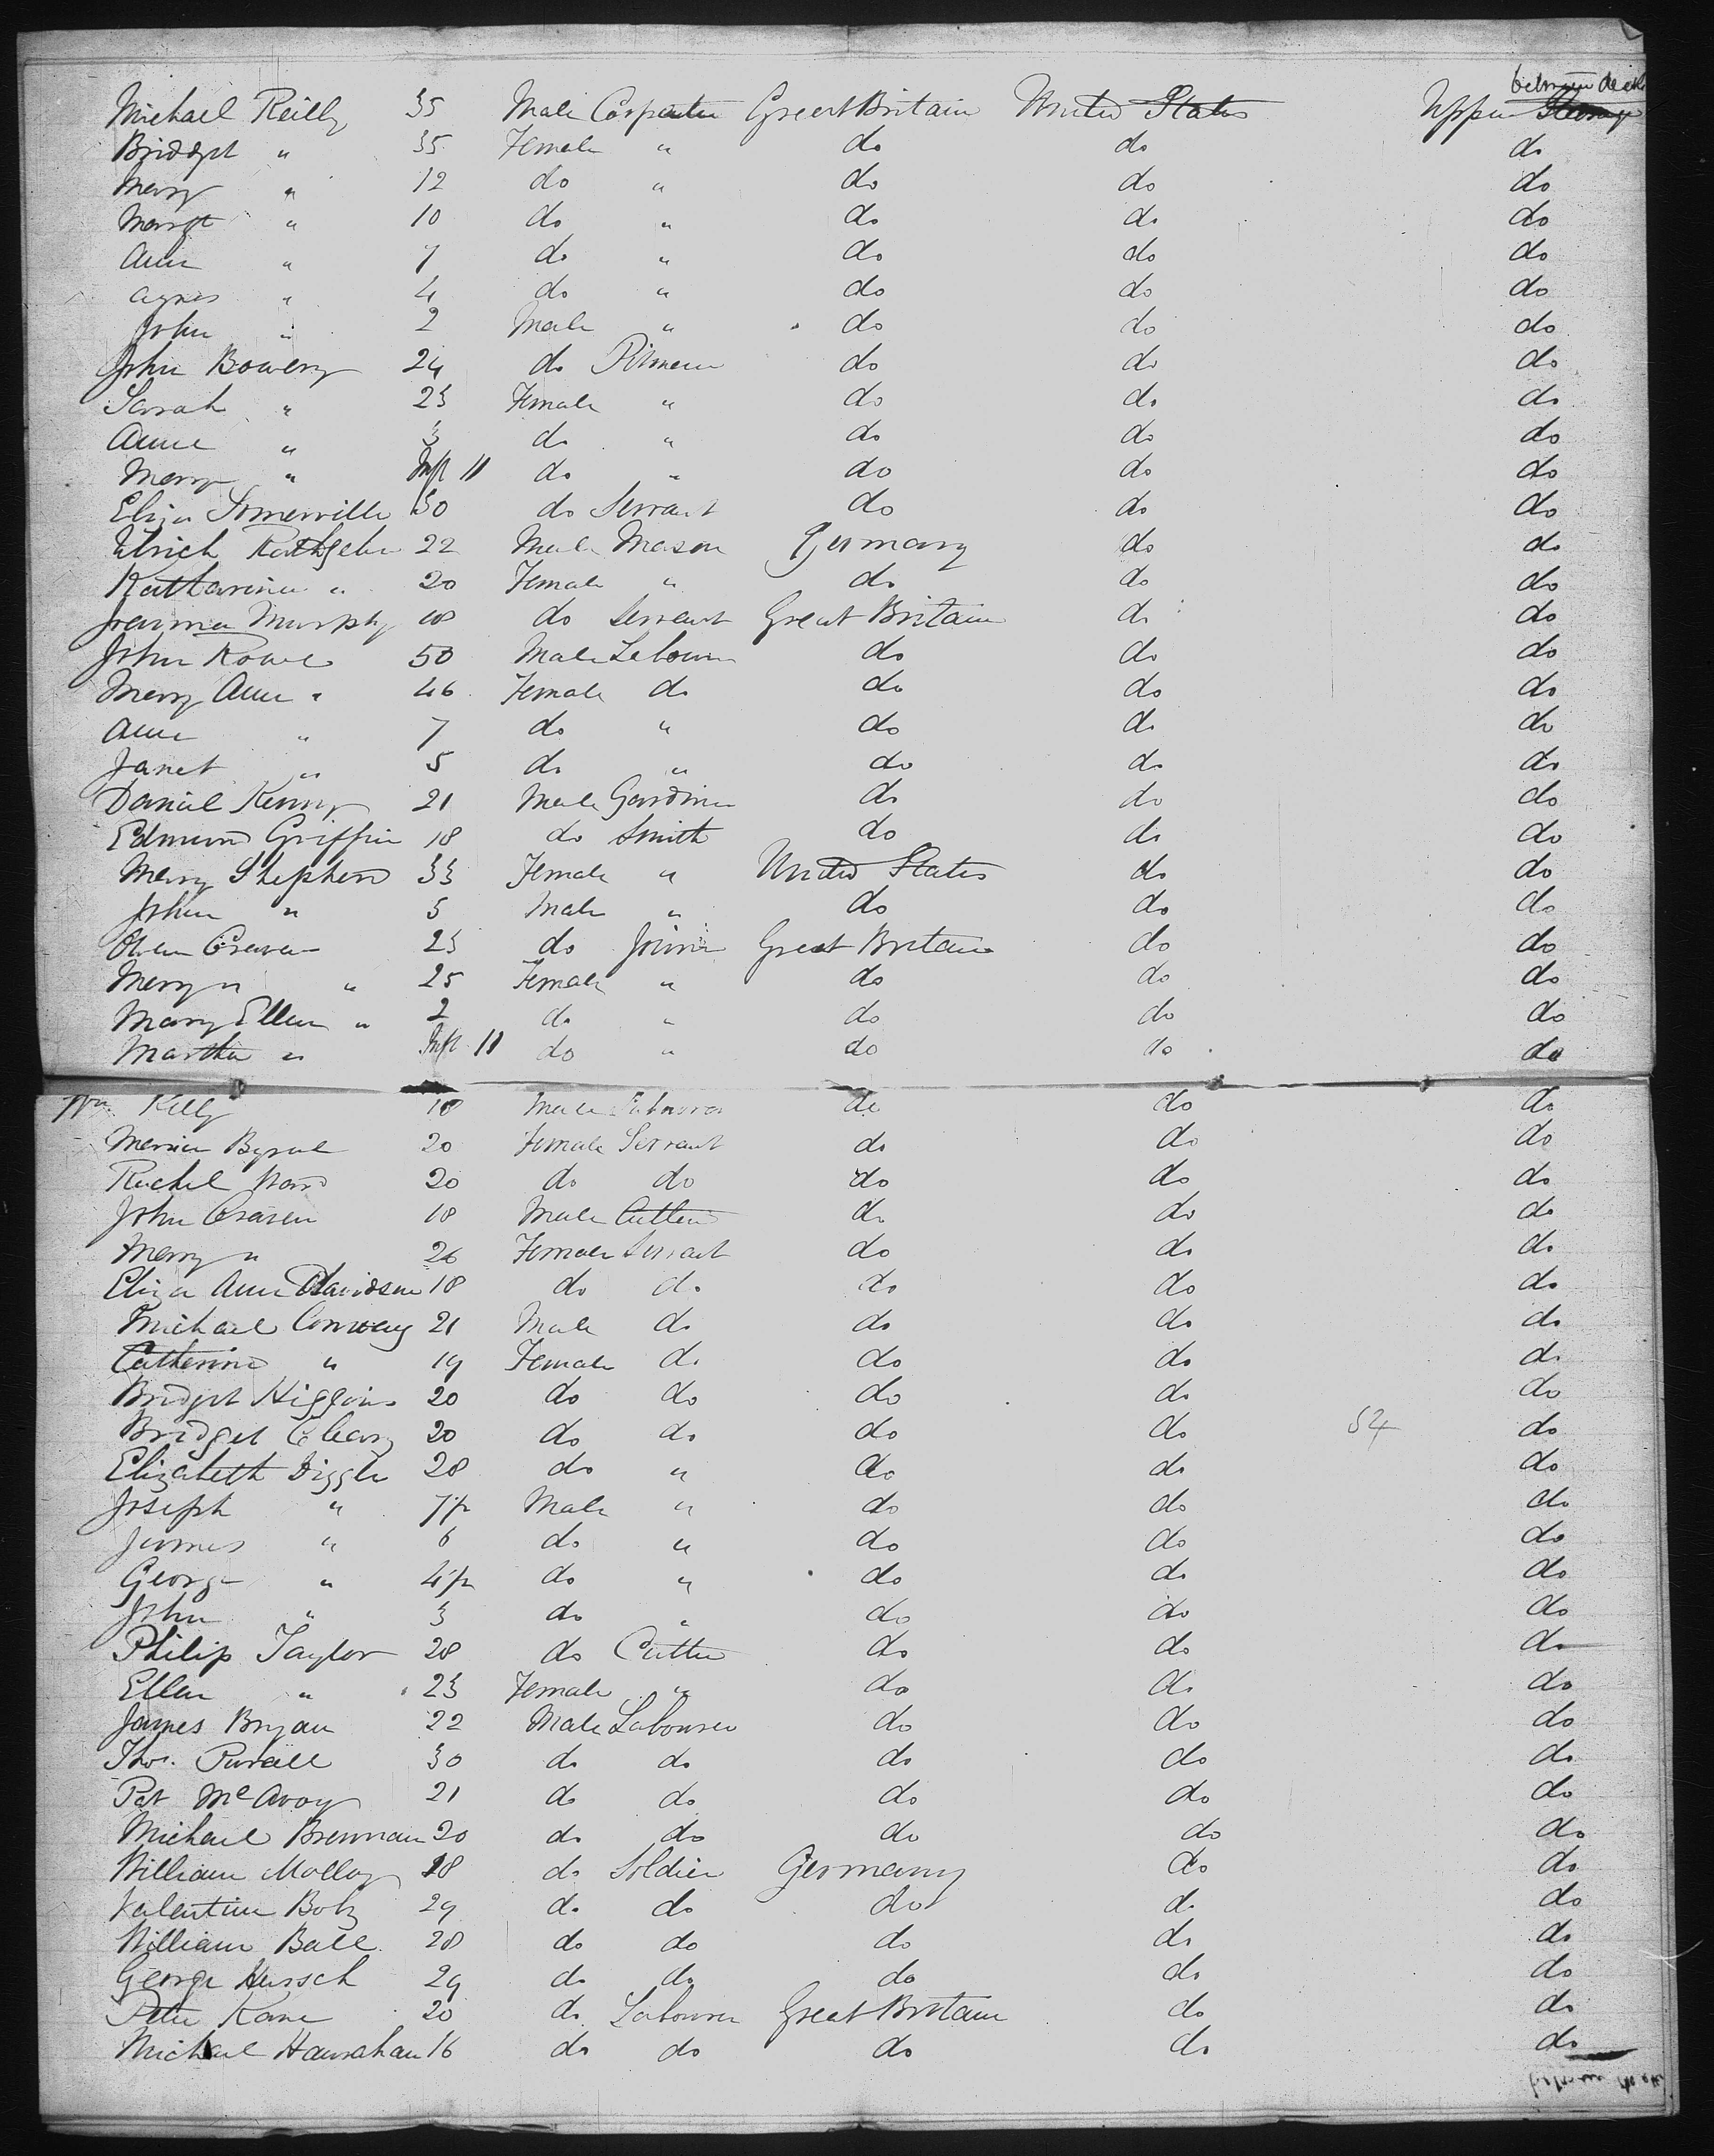 between decks
Michael Reilly 35 Male Carpenter Great Britain United States Upper Steerage
Bridget " 35 Female " do do do
Mary " 12 do " do do do
Margt " 10 do " do do do
Ann " 7 do " do do do
Agnes " 4 do " do do do
John " 2 Male " do do do
John Bowery 24 do Pitman do do do
Sarah " 23 Female " do do do
Anne " 3 do " do do do
Mary " Inft 11 do " do do do
Eliza Somerville 30 do Servant do do do
Ulrich Rathgeber 22 Male Mason Germany do do
Katharina " 20 Female " do do do
Murphy 18 do Servant Great Britain do do
John Rowe 50 Male Labourer do do do
Mary Ann " 46 Female do do do do
Ann " 7 do " do do do
Janet " 5 do " do do do
Daniel Kenny 21 Male Gardiner do do do
Edmund Griffin 18 do Smith do do do
Mary Shepherd 33 Female " United States do do
John " 3 Male " do do do
Owen Craven 23 do Joiner Great Britain do do
Mary " " 25 Female " do do do
Mary Ellen " 2 do " do do do
Martha " Inft 11 do " do do do
Wm Kelly 18 Male Labourer do do do
Byrne 20 Female Servant do do do
Rachel Ward 20 do do do do do
John Craven 18 Male Cutler do do do
Mary " 26 Female Servant do do do
Eliza Ann Davidson 18 do do do do do
Michael Conway 21 Male do do do do
Catherine " 19 Female do do do do
Bridget Higgins 20 do do do do do
Bridget Cleary 20 do do do do 54 do
Elizabeth Diggle 28 do " do do do
Joseph " 7½ Male " do do do
James " 6 do " do do do
George " 4½ do " do do do
John " 3 do " do do do
Philip Taylor 28 do Cutler do do do
Ellen " 23 Female " do do do
James Bryan 22 Male Labourer do do do
Thos. Purcell 30 do do do do do
Pat McAvoy 21 do do do do do
Michael Brennan 20 do do do do do
William Molloy 28 do Soldier Germany do do
Valentine Botz 29 do do do do do
William Ball 28 do do do do do
George Hirsch 29 do do do do do
Peter Kane 20 do Labourer Great Britain do do
Michael Hanrahan 16 do do do do do
between decks